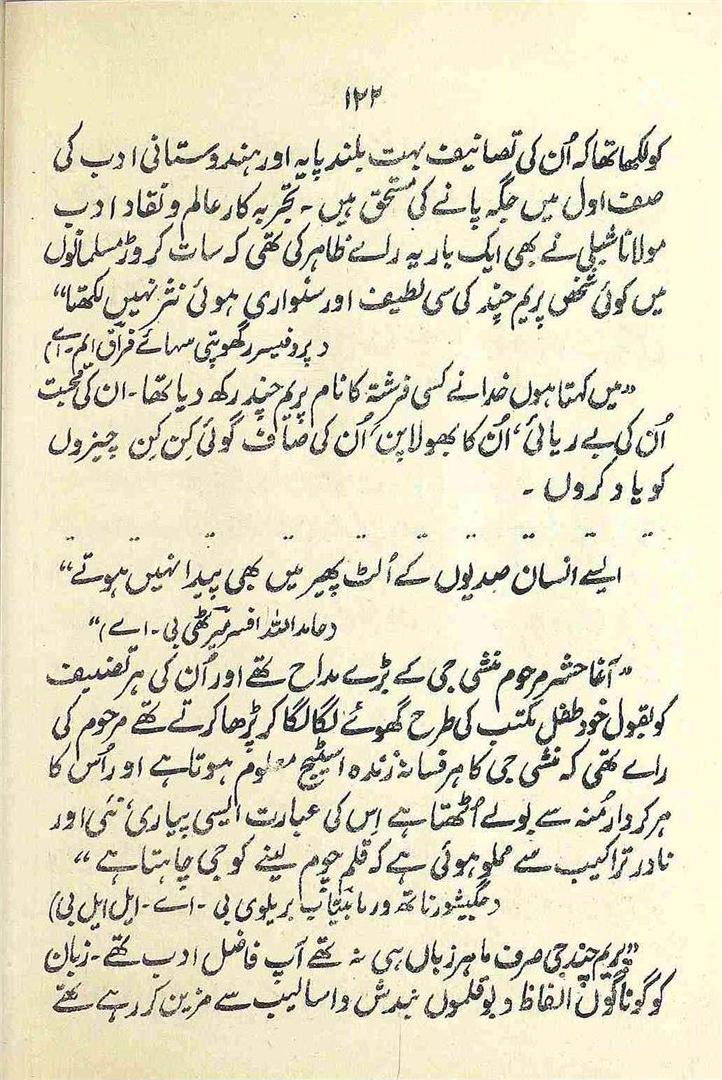 ۱۲۳
کو لکھا تھا کہ اُن کی تصانیف بہت بلند پایہ اور ہندوستانی ادب کی
صف اول میں جگہ پانے کی مستحق ہیں۔ تجربہ کار عالم و نقاد ادب
مولانا شبلی نے بھی ایک بار یہ رائے ظاہر کی تھی کہ سات کروڑ مسلمانوں
میں کوئی شخص پریم چند کی سی لطیف اور سنواری ہوئی نثر نہیں لکھتا“
(پروفیسر رگھوپتی سہائے فراق ایم۔اے)
”میں کہتا ہوں خدا نے کسی فرشتہ کا نام پریم چند رکھ دیا تھا۔ ان کی محبت
اُن کی بے ریائی، اُن کا بھولا پن، اُن کی صاف گوئی کِن کِن چیزوں
کو یاد کروں۔
ایسے انسان صدیوں کے اُلٹ پھیر میں بھی پیدا نہیں ہوتے“
(حامد اللہ افسر میرٹھی بی۔اے)“
”آغا حشر مرحوم منشی جی کے بڑے مداح تھے اور اُن کی ہر تصنیف
کو بقول خود طفل مکتب کی طرح گھوٹے لگا لگا کر پڑھا کرتے تھے مرحوم کی
رائے تھی کہ منشی جی کا ہر فسانہ زندہ اسٹیج معلوم ہوتا ہے اور اُس کا
ہر کردار مُنہ سے بولے اُٹھتا ہے اِس کی عبارت ایسی پیاری، نئی اور
نادر تراکیب سے مملو ہوئی ہے کہ قلم چوم لینے کو جی چاہتا ہے“
(جگیشور ناتھ ورما بیتاب بریلوی بی۔اے۔ایل ایل بی)
”پریم چند جی صرف ماہر زباں ہی نہ تھے آپ فاضل ادب تھے۔ زبان
کو گوناگوں الفاظ و بوقلموں بندش و اسالیب سے مزین کر رہے تھے